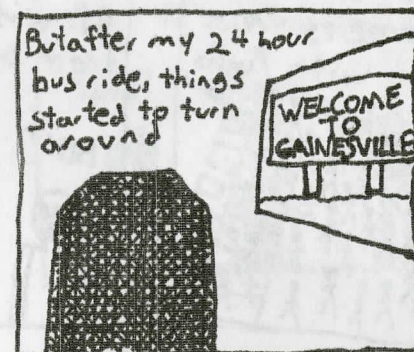 But after my 24 hour
bus ride, things
started to turn
around
WELCOME
TO
GAINESVILLE